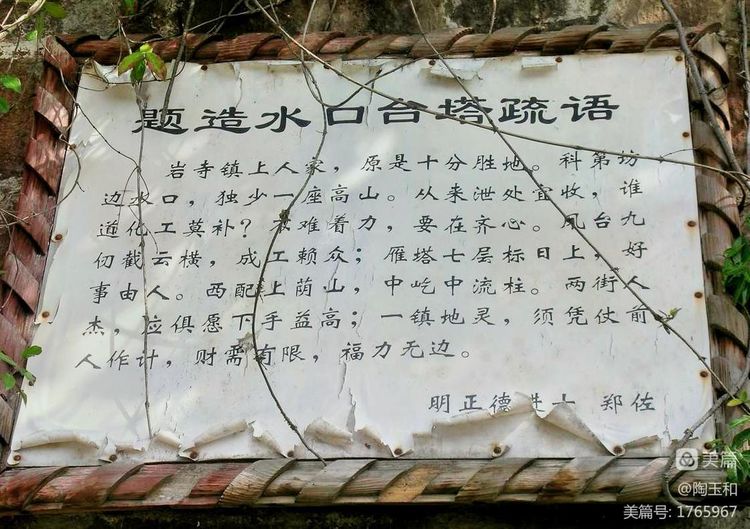 题造水口台塔疏语
岩寺镇上人家，原是十分胜地。科第坊
边水口，独少一座高山。从来泄处宜收，谁
道化工莫补？不难着力，要在齐心。凤台九
仞截云横，成工赖众；雁塔七层标日上，好
事由人。西配上荫山，中屹中流柱。两街人
杰，应俱愿下手益高；一镇地灵，须凭仗前
人作计，财需有限，福力无边。
明正德进士 郑佐
美篇
@陶玉和
美篇号: 1765967